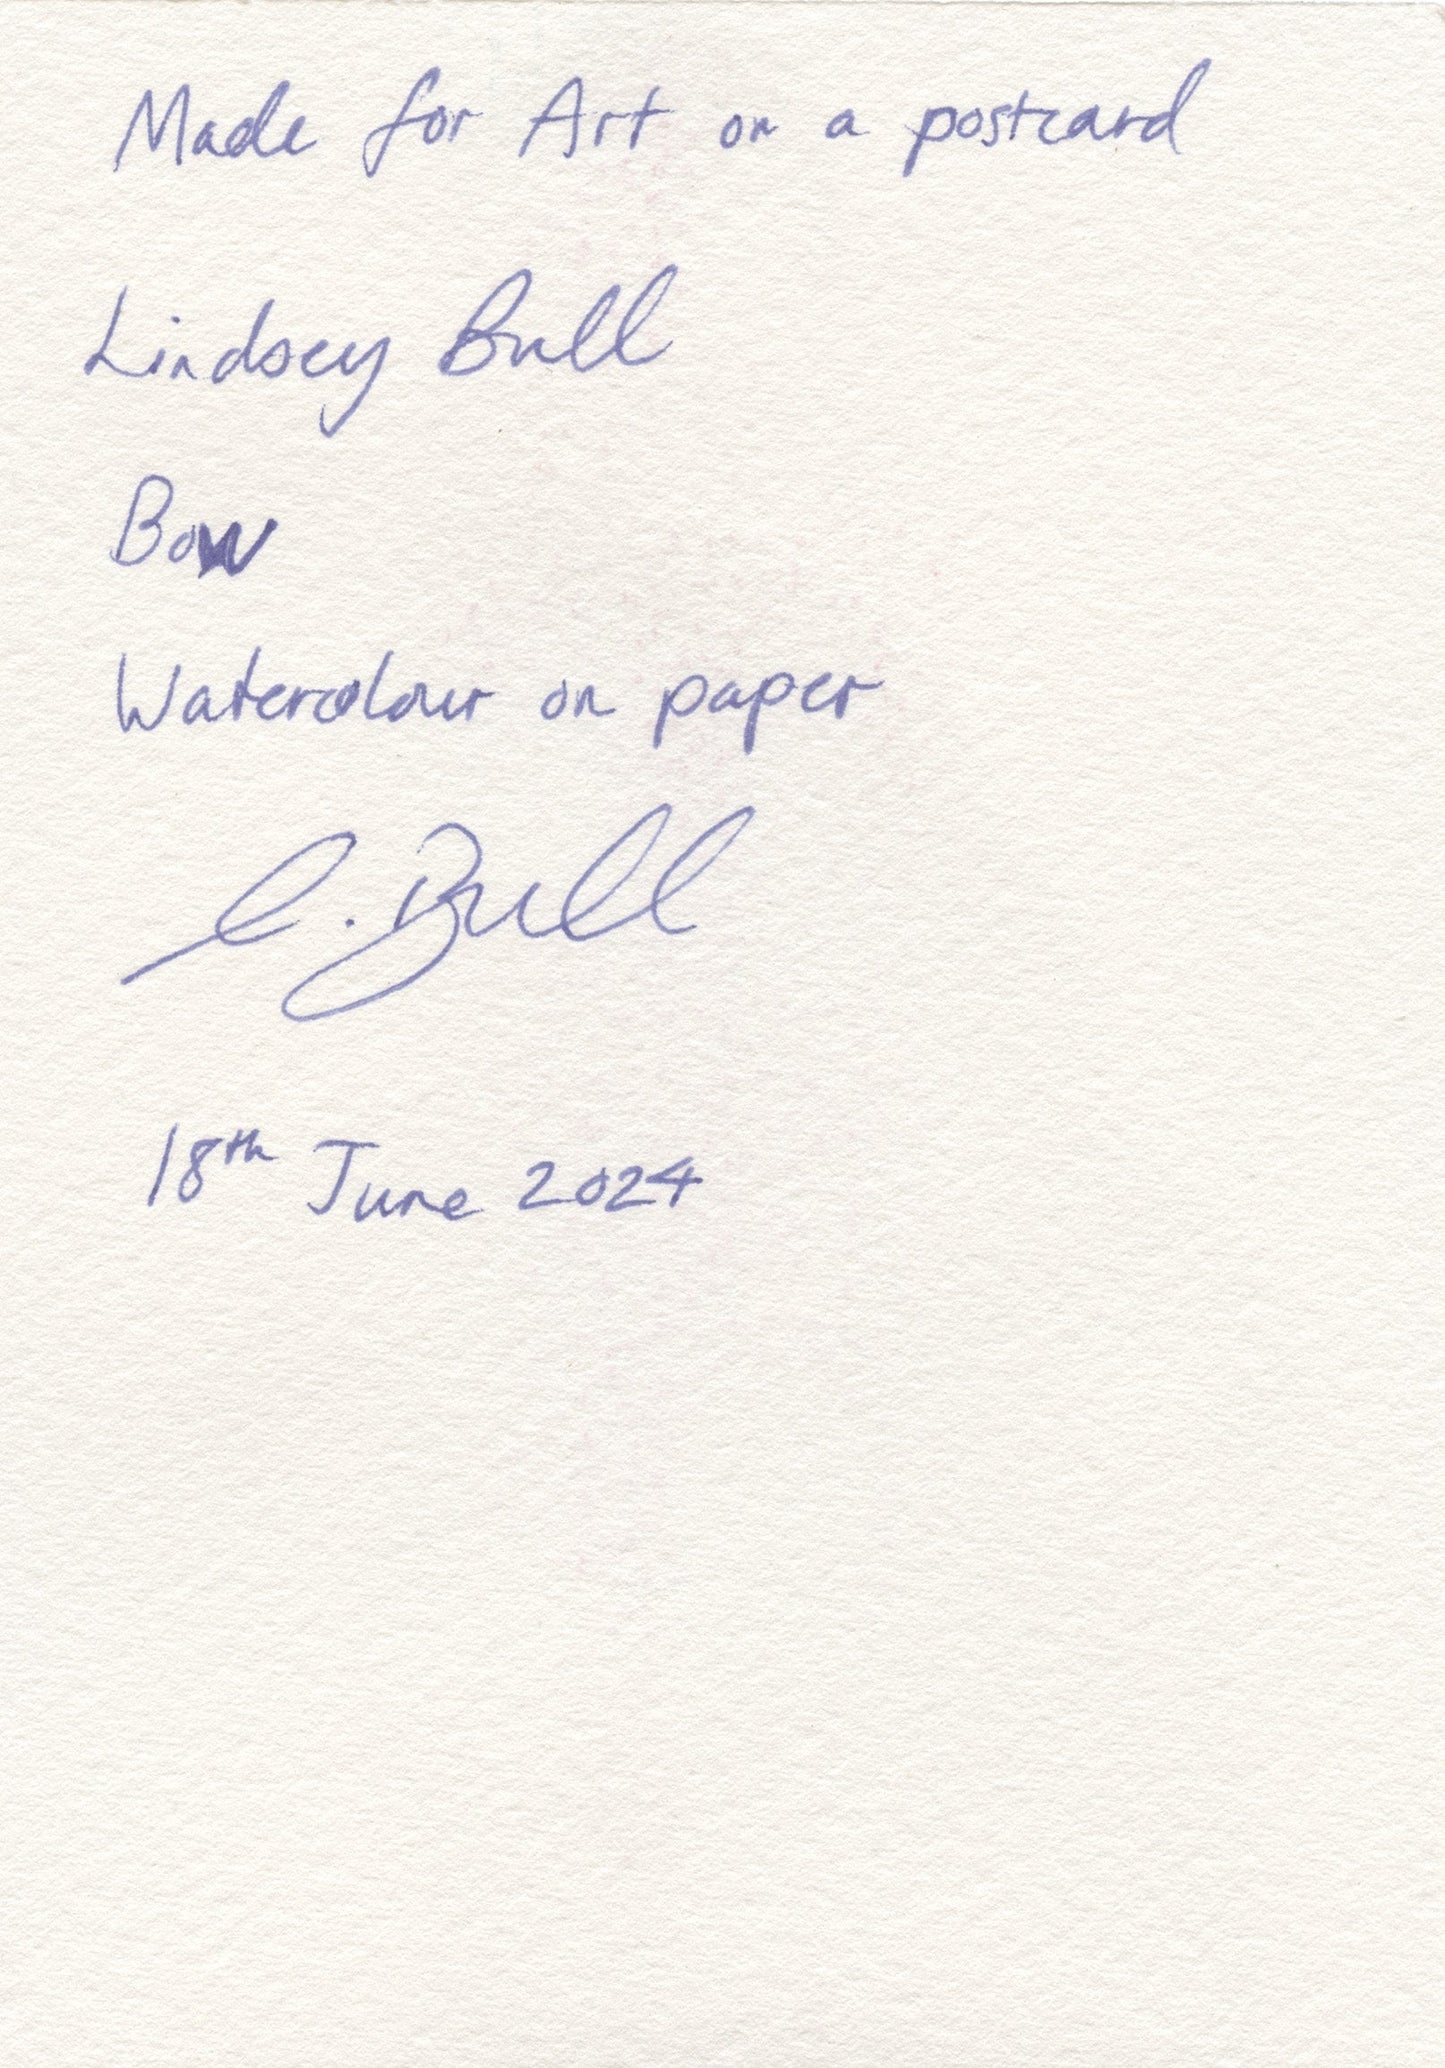 Made for Art on a postcard
Lindsey Bull
Bow
Watercolour on paper
L. Bull
18th June 2024